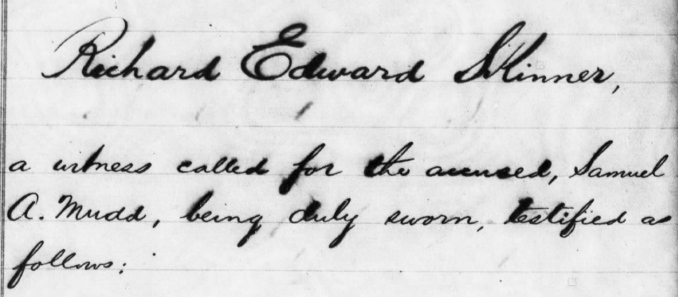 Richard Edward Skinner,
a witness called for the accused, Samuel
A. Mudd, being duly sworn, testified as
follows: